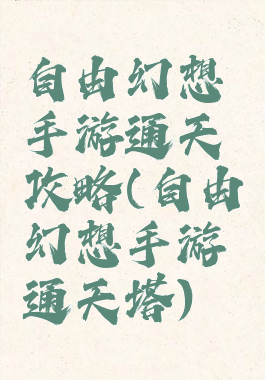 自由幻想
手游通天
攻略(自由
幻想手游
通天塔)